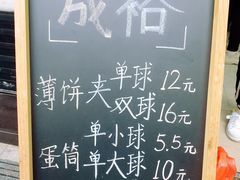 成裕
薄饼夹单球 12元
双球 16元
蛋筒单小球 5.5元
单大球 10元